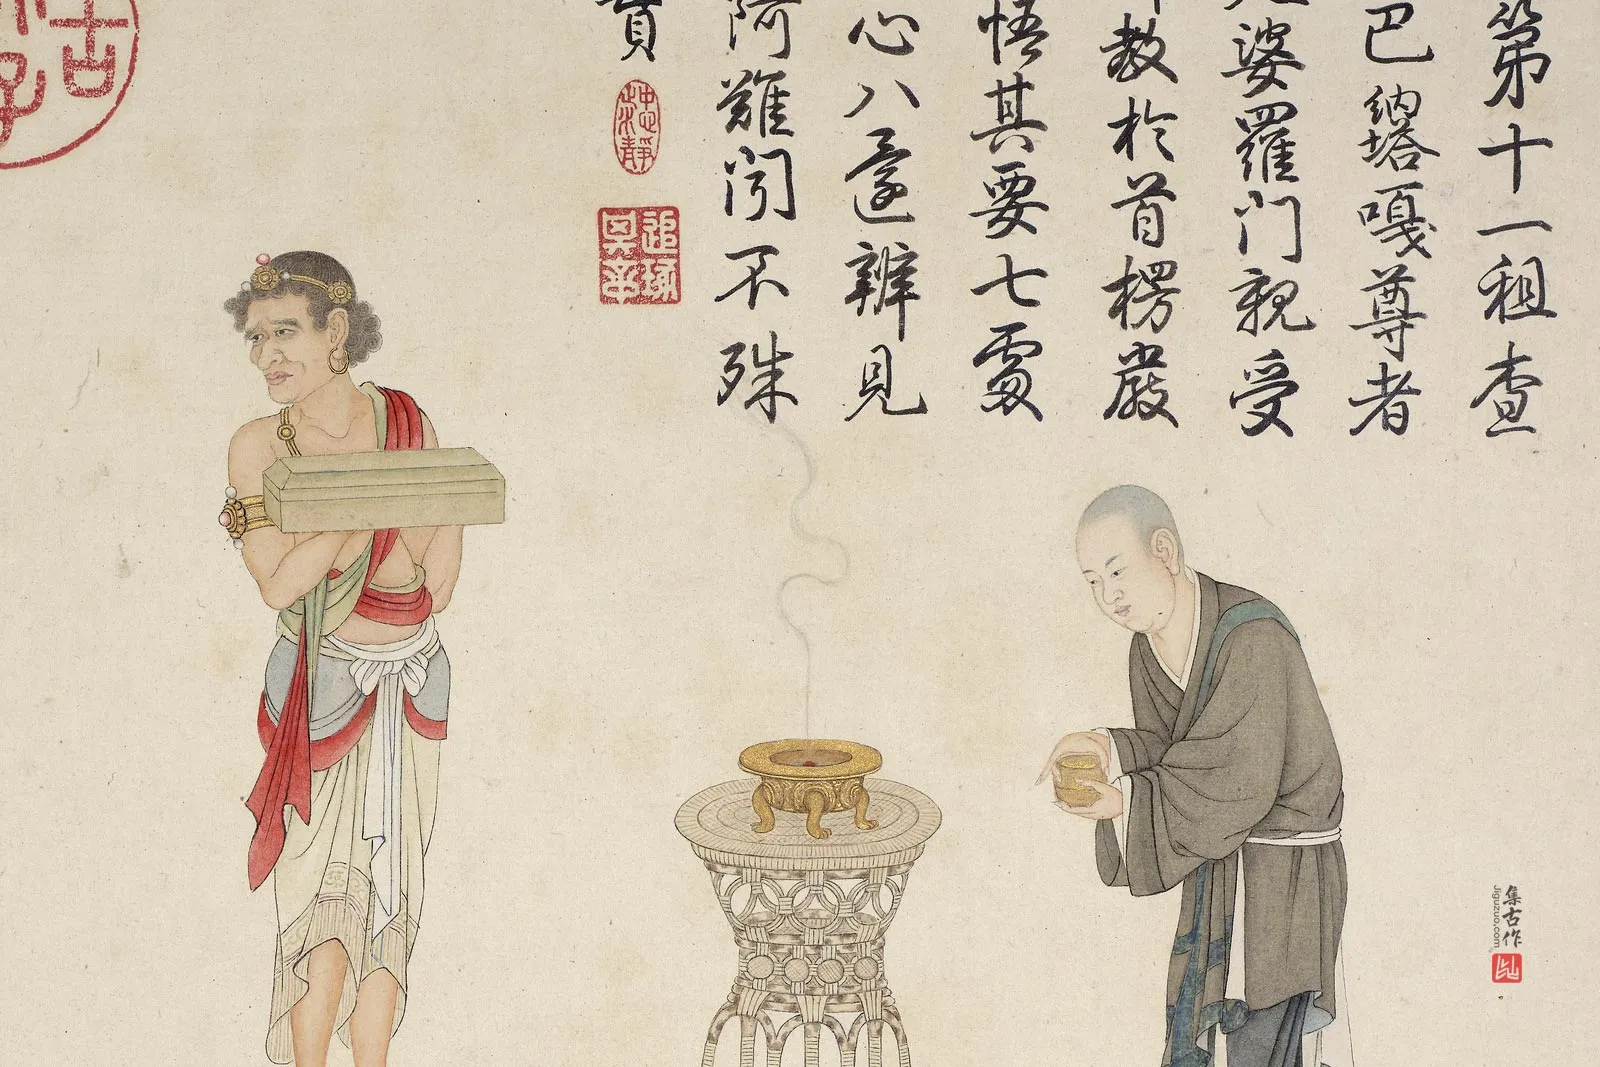 第十一租查
巴納塔嘎尊者
婆羅門親受
教於首楞嚴
悟其要七處
心八還辨見
阿難不殊
追琢其章
集古作
Jiguzuo.com